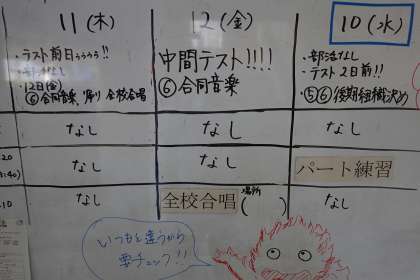 11 (木)
・テスト前日ぅぅぅぅ!!
・部活なし
・12日(金)
⑥合同音楽 帰り 全校合唱
12 (金)
中間テスト!!!!
⑥合同音楽
10 (水)
・部活なし
・テスト2日前!!
・⑤⑥後期組織決め
なし
なし
なし
.20
:40)
なし
なし
パート練習
.10
なし
全校合唱
場所
(   )
なし
いつもと違うから
要チェック!!